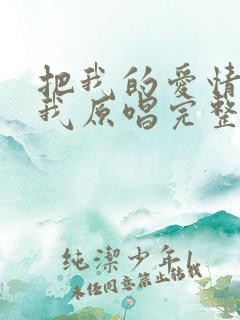 把我的爱情
我原唱完整
纯洁少年1
未经同意禁止转载